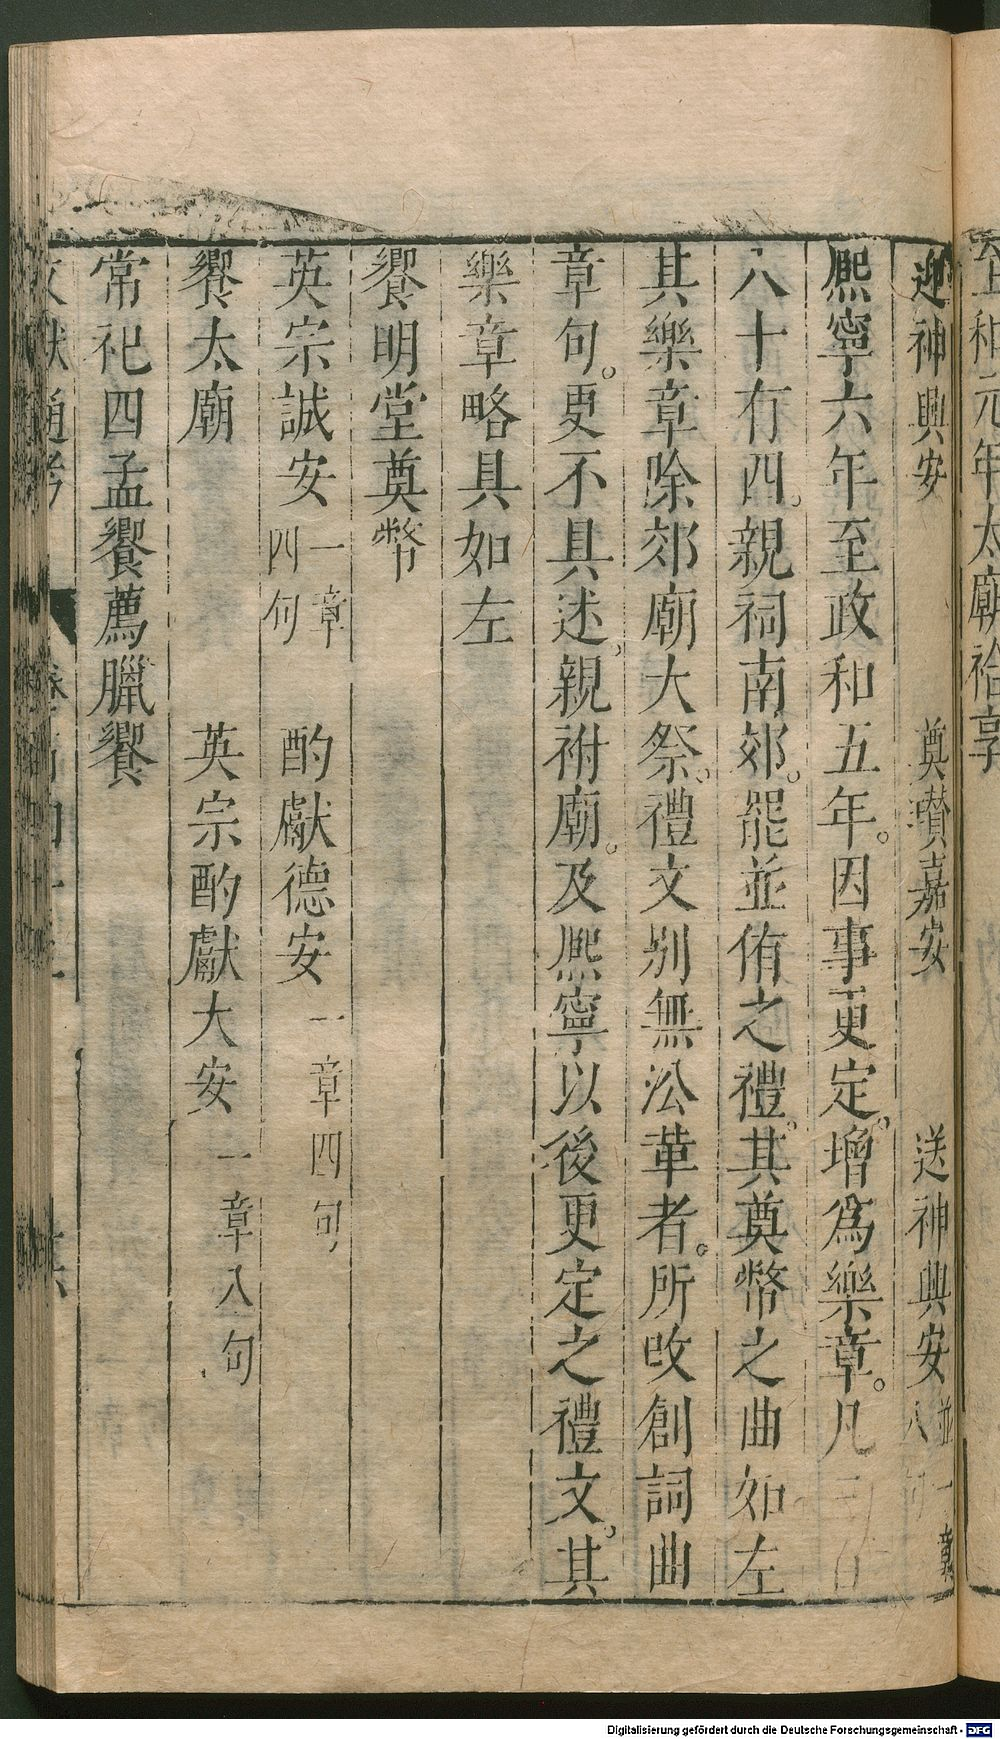 上和元年太廟祫享
迎神興安 奠瓚嘉安 送神興安 並一章八句
熈寧六年至政和五年。因事更定。增爲樂章。凡三百
八十有四。親祠南郊。罷並侑之禮。其奠幣之曲如左
其樂章除郊廟大祭。禮文別無㳂革者。所改創詞曲
章句。更不具述。親祔廟。及熈寧以後更定之禮文。其
樂章略具如左
饗明堂奠幣
英宗誠安 一章四句 酌獻德安 一章四句
饗太廟 英宗酌獻大安 一章八句
常祀四孟饗薦臘饗
文獻通考
Digitalisierung gefördert durch die Deutsche Forschungsgemeinschaft - DFG